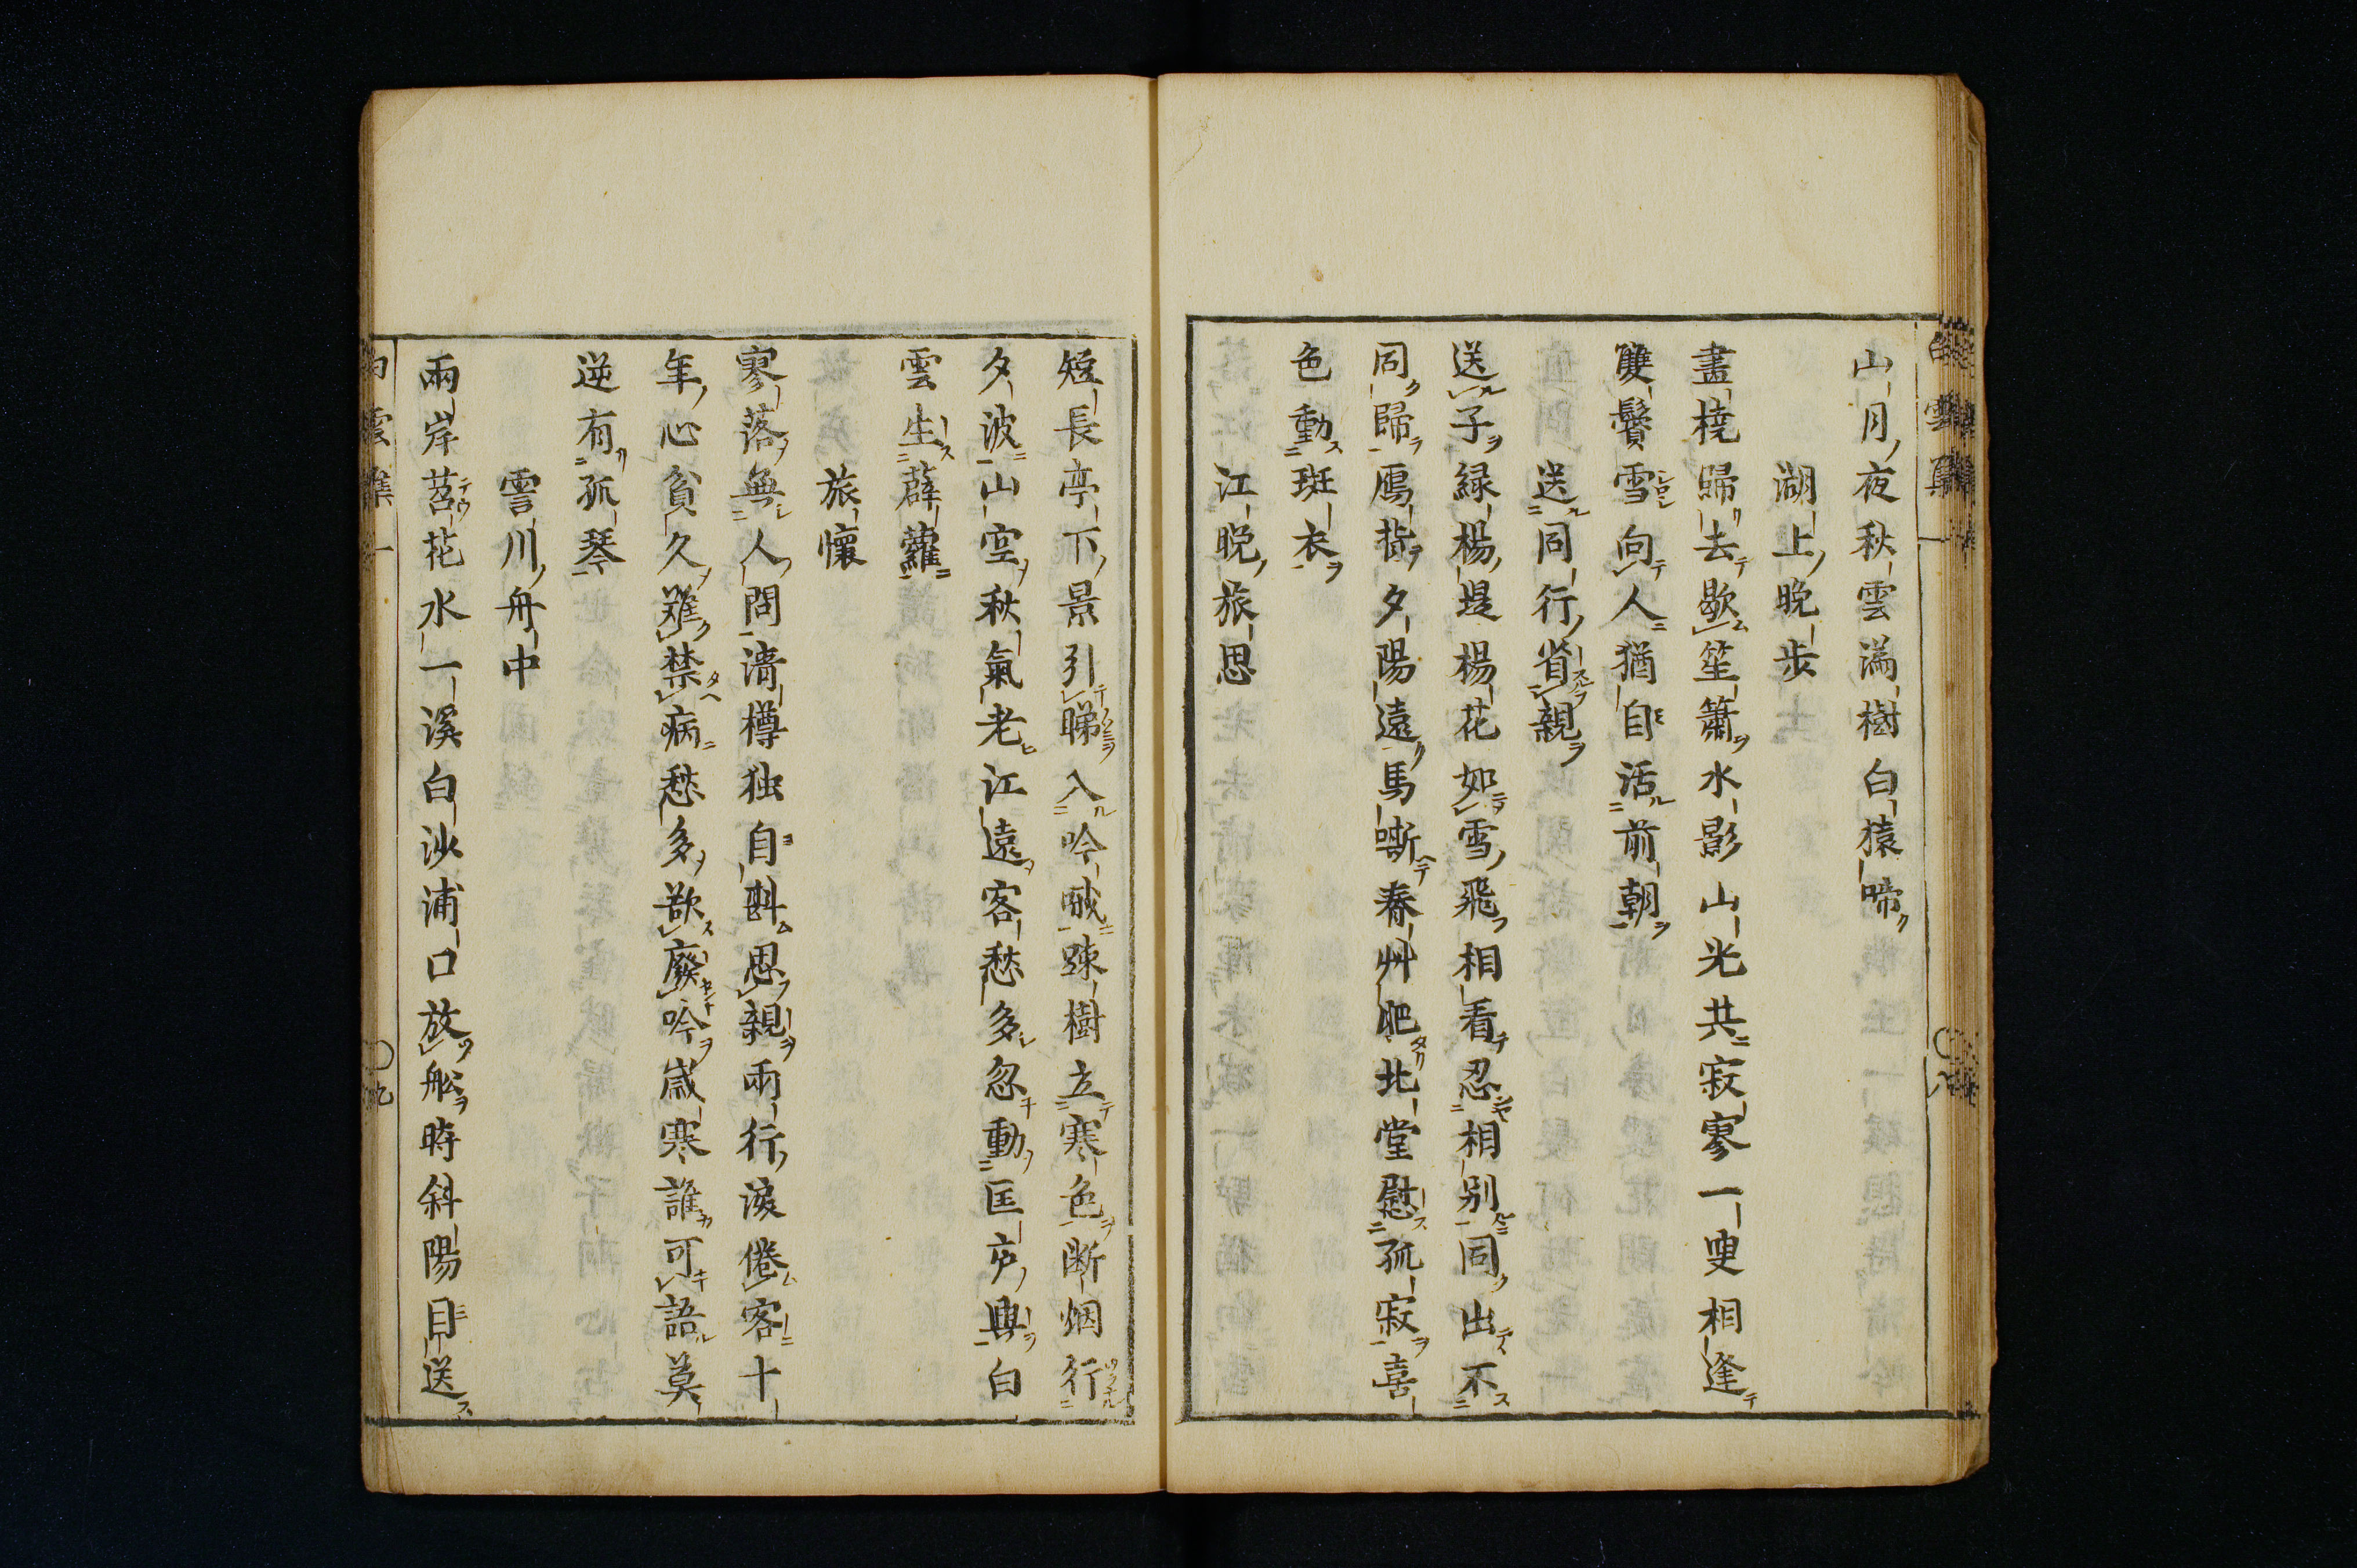 山月夜秋雲滿樹白猿啼
湖上晚歩
畫橈歸去歇笙簫水影山光共寂寥一叟相逢
雙鬢雪向人猶自活前朝
送同行省親
送子綠楊堤楊花如雪飛相看忍相別同出不
同歸鴈背夕陽遠馬嘶春艸肥北堂慰孤寂喜
色動斑衣
江晚旅思
短長亭下景引睇入吟醎踈樹立寒色断烟行
夕波山空秋氣老江遠客愁多忽動匡庐興白
雲生薜蘿
旅懷
寥落無人問清樽独自斟思親兩行淚倦客十
年心貧久難禁病愁多欲廢吟歲寒誰可語莫
逆有孤琴
霅川舟中
兩岸苕花水一溪白沙浦口放舩時斜陽目送
白雲集一
九
白雲集一
八